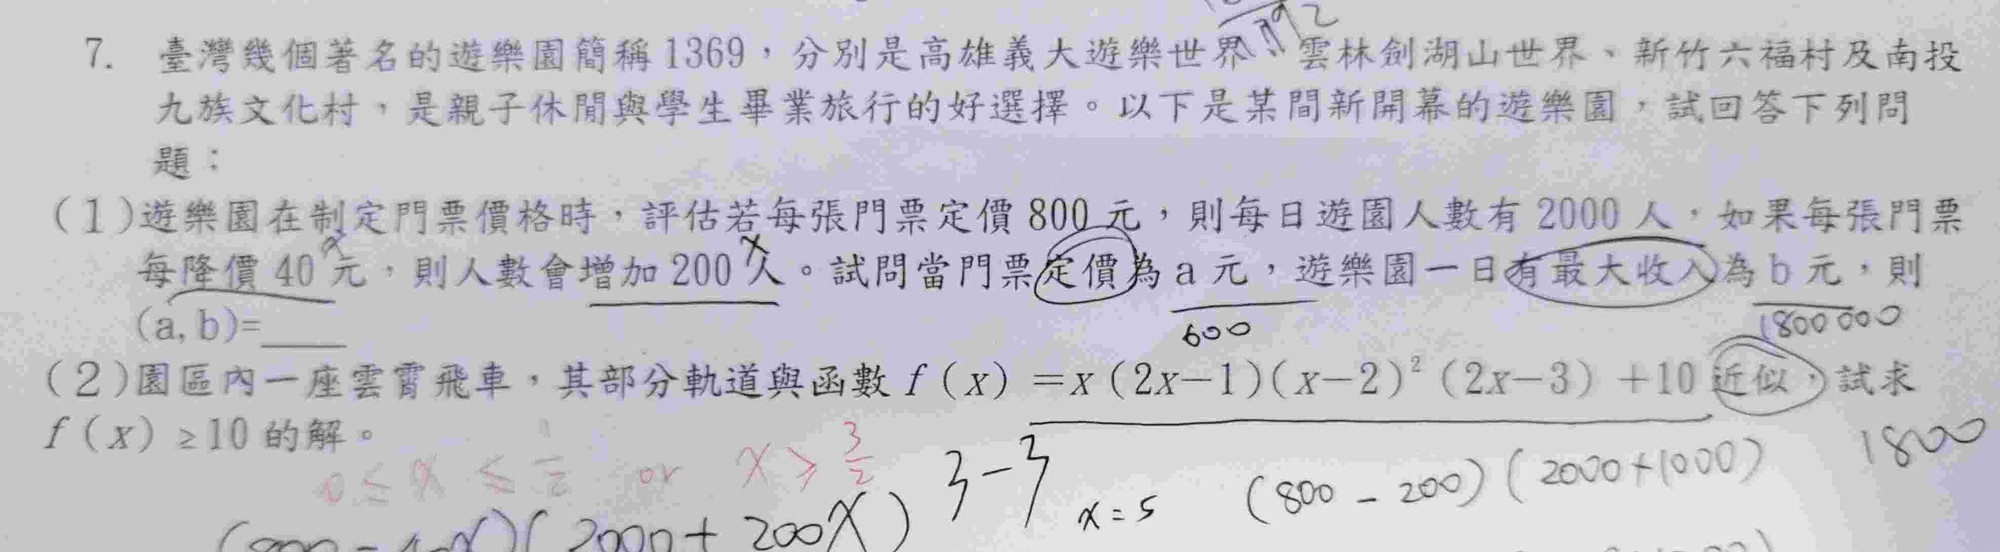 192
7. 臺灣幾個著名的遊樂園簡稱1369,分別是高雄義大遊樂世界、雲林劍湖山世界、新竹六福村及南投
九族文化村,是親子休閒與學生畢業旅行的好選擇。以下是某間新開幕的遊樂園,試回答下列問
題:
(1)遊樂園在制定門票價格時,評估若每張門票定價800元,則每日遊園人數有2000人,如果每張門票
x x
每降價40元,則人數會增加200人。試問當門票定價為a元,遊樂園一日有最大收入為b元,則
(a,b)=____
600 1800000
(2)園區內一座雲霄飛車,其部分軌道與函數f(x)=x(2x-1)(x-2)²(2x-3)+10近似,試求
f(x)≥10的解。
0≤x≤1/2 or x≥3/2
3-3 x=5 (800-200)(2000+1000) 1800
(800-40x)(2000+200x)